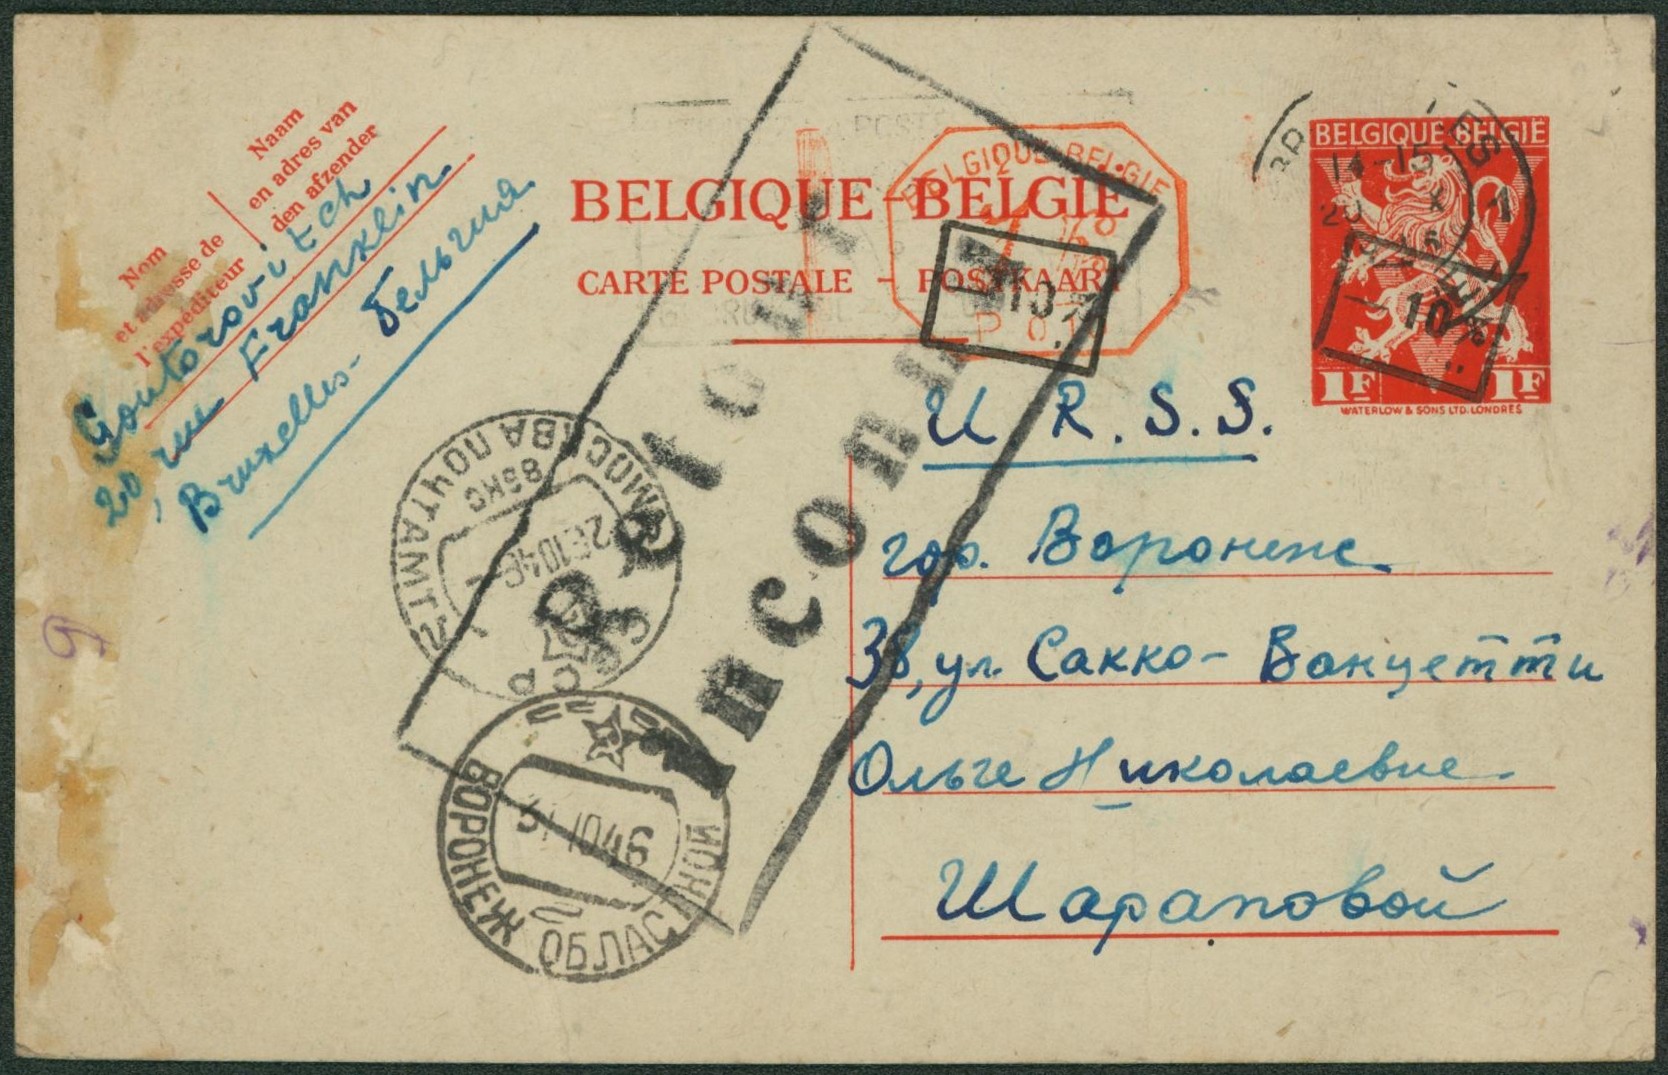 Naam
en adres van
den afzender
Nom
et adresse de
l'expéditeur
Goutorovitch
20, rue Franklin
Bruxelles- Бельгия
BELGIQUE-BELGIË
CARTE POSTALE - POSTKAART
BELGIQUE-BELGIE
P 0.1
-10%
BELGIQUE-BELGIË
14-15
20 X
1
-10%
1F 1F
WATERLOW & SONS LTD. LONDRES
Retour
Inconnu
МОСКВА ПОЧТАМТ
СССР
ВОРОНЕЖ ОБЛАСТНОЙ
U.R.S.S.
гор. Воронеж
38, ул. Сакко-Ванцетти
Ольге Николаевне
Шараповой